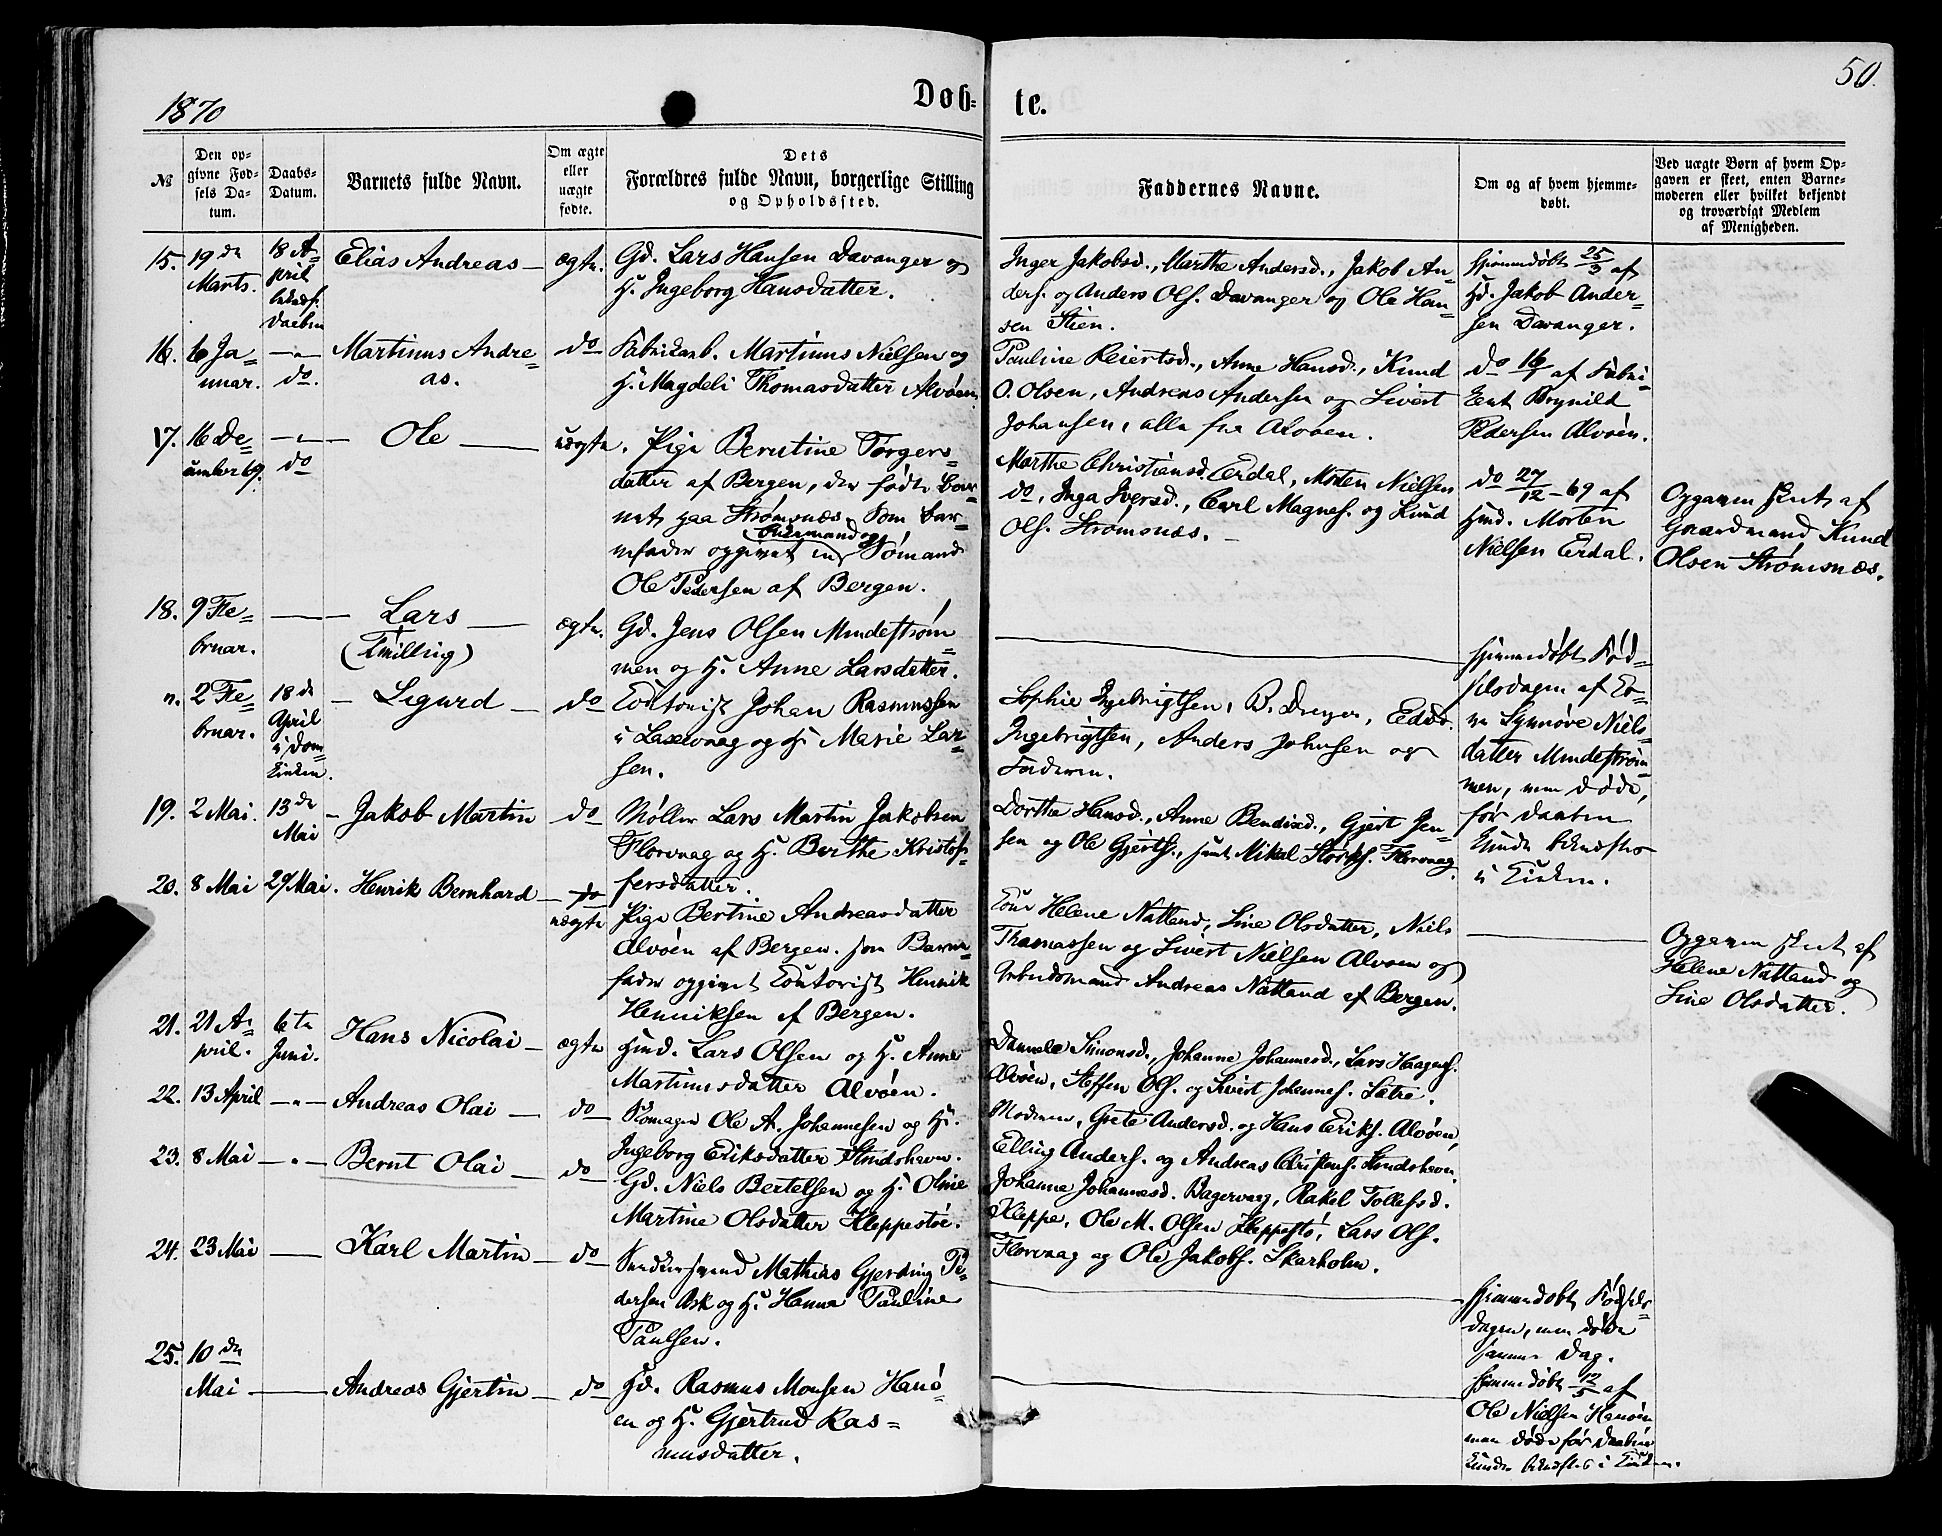 1870
Døb-
te.
50.
№
Den op-
givne Fød-
sels Da-
tum.
Daabs-
Datum.
Barnets fulde Navn.
Om ægte
eller
uægte
fødte.
Dets
Forældres fulde Navn, borgerlige Stilling
og Opholdssted.
Faddernes Navne.
Om og af hvem hjemme-
døbt.
Ved uægte Børn af hvem Op-
gaven er skeet, enten Barne-
moderen eller hvilket bekjendt
og troværdigt Medlem
af Menigheden.
15. 19de
Marts.
18 A-
pril
bekræf.
Daaben
Elias Andreas
ægte.
Gd. Lars Hansen Davanger og
H. Ingeborg Hansdatter.
Inger Jakobsd., Marthe Andersd., Jakob An-
ders. og Anders Ols. Davanger og Ole Han-
sen Stien.
Hjemmedøbt 25/3 af
Gd. Jakob Ander-
sen Davanger.
16. 6 Ja-
nuar.
-"-
do.
Martinus Andre-
as.
do
Fabrikarb. Martinus Nielsen og
H. Magdeli Thomasdatter Alvøen.
Pauline Reiertsd., Anne Hansd., Knud
O. Olsen, Andreas Andersen og Sivert
Johansen, alle fra Alvøen.
do 16/1 af Fabri-
kent Brynild
Pedersen Alvøen.
17. 16 De-
cember 69.
-"-
do
Ole
uægte.
Pige Berntine Torgers-
datter af Bergen, der fødte Bar-
net paa Strømsnæs. Som Bar-
nefader opgivet Sømand
Ole Pedersen af Bergen.
Marthe Christensd. Erdal, Morten Nielsen
do, Inga Iversd., Carl Magnes. og Knud
Ols. Strømsnæs.
do 27/12-69 af
Hmd. Morten
Nielsen Erdal.
Opgaven skeet af
Gaardmand Knud
Olsen Strømsnæs.
18. 9 Fe-
bruar.
Lars
(Tvilling)
ægte.
Gd. Jens Olsen Mindestrøm-
men og H. Anne Larsdatter.
Hjemmedøbt Fød-
selsdagen af
Synnøve Niels-
datter Mindestrøm-
men, men døde,
før Daaben
kunde bekræftes
i Kirken.
n. 2 Fe-
bruar.
18de
April
i Dom-
kirken.
Sigurd
do
Contorist Johan Rasmussen
i Laxevaag og H. Marie Lar-
sen.
Sophie Ingebrigtsen, B. Dreyer, Edv.
Ingebrigtsen, Anders Johnsen og
Faderen.
19. 2 Mai.
13de
Mai
Jakob Martin
do
Møller Lars Martin Jakobsen
Florvaag og H. Berthe Kristof-
fersdatter.
Dorthe Hansd., Anne Bendixd., Gjert Jen-
sen og Ole Gjerts., samt Mikal Florvaag.
20. 8 Mai
29 Mai.
Henrik Bernhard
do
uægte
Pige Bertine Andreasdatter
Alvøen af Bergen. Som Barne-
fader opgivet Contorist Henrik
Henriksen af Bergen.
Kone Helene Natland, Sine Olsdatter, Niels
Thomassen og Sivert Nielsen Alvøen og
Arbeidsmand Andreas Natland af Bergen.
Opgaven skeet af
Helene Natland og
Sine Olsdatter.
21. 21 A-
pril.
6te
Juni.
Hans Nicolai
ægte
Hmd. Lars Olsen og H. Anne
Martinusdatter Alvøen.
Simonsd., Johanne Johannesd., Lars Haagens.
Alvøen, Steffen Ols. og Sivert Johannes. Satre.
22. 13 April
-"-
Andreas Olai
do
Skomager Ole A. Johannesen og H.
Ingeborg Eriksdatter Skudshavn.
Moderen, Grete Andersd. og Hans Eriks. Alvøen,
Elling Anders. og Andreas Christens. Skudshavn.
23. 8 Mai
-"-
Bernt Olai
do
Gd. Niels Bertelsen og H. Oline
Martine Olsdatter Kleppestøe.
Johanne Johannesd. Bagervaag, Rakel Tollefsd.
Kleppe, Ole M. Olsen Kleppestø, Lars Ols.
Florvaag og Ole Jakobs. Skarholm.
24. 23 Mai
Karl Martin
do
Mathias Gjerding Pe-
dersen Ask og H. Hanna Pauline
Paulsen.
Hjemmedøbt Fødsels-
dagen, men døde
samme Dag.
25. 10de
Mai
Andreas Gjertin
do
Gd. Rasmus Monsen Hanø-
en og H. Gjertrud Ras-
musdatter.
Hjemmedøbt 12/5 af
Ole Nielsen Hanøen
men døde før Daaben
kunde bekræftes i Kirken.